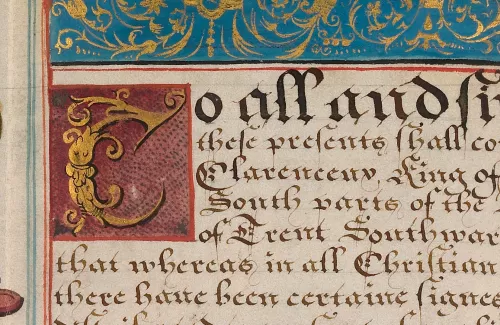 To all and si
these presents shall co
Clarenceux, King of
South parts of the
of Trent Southwar
that whereas in all Christian
there have been certaine signes